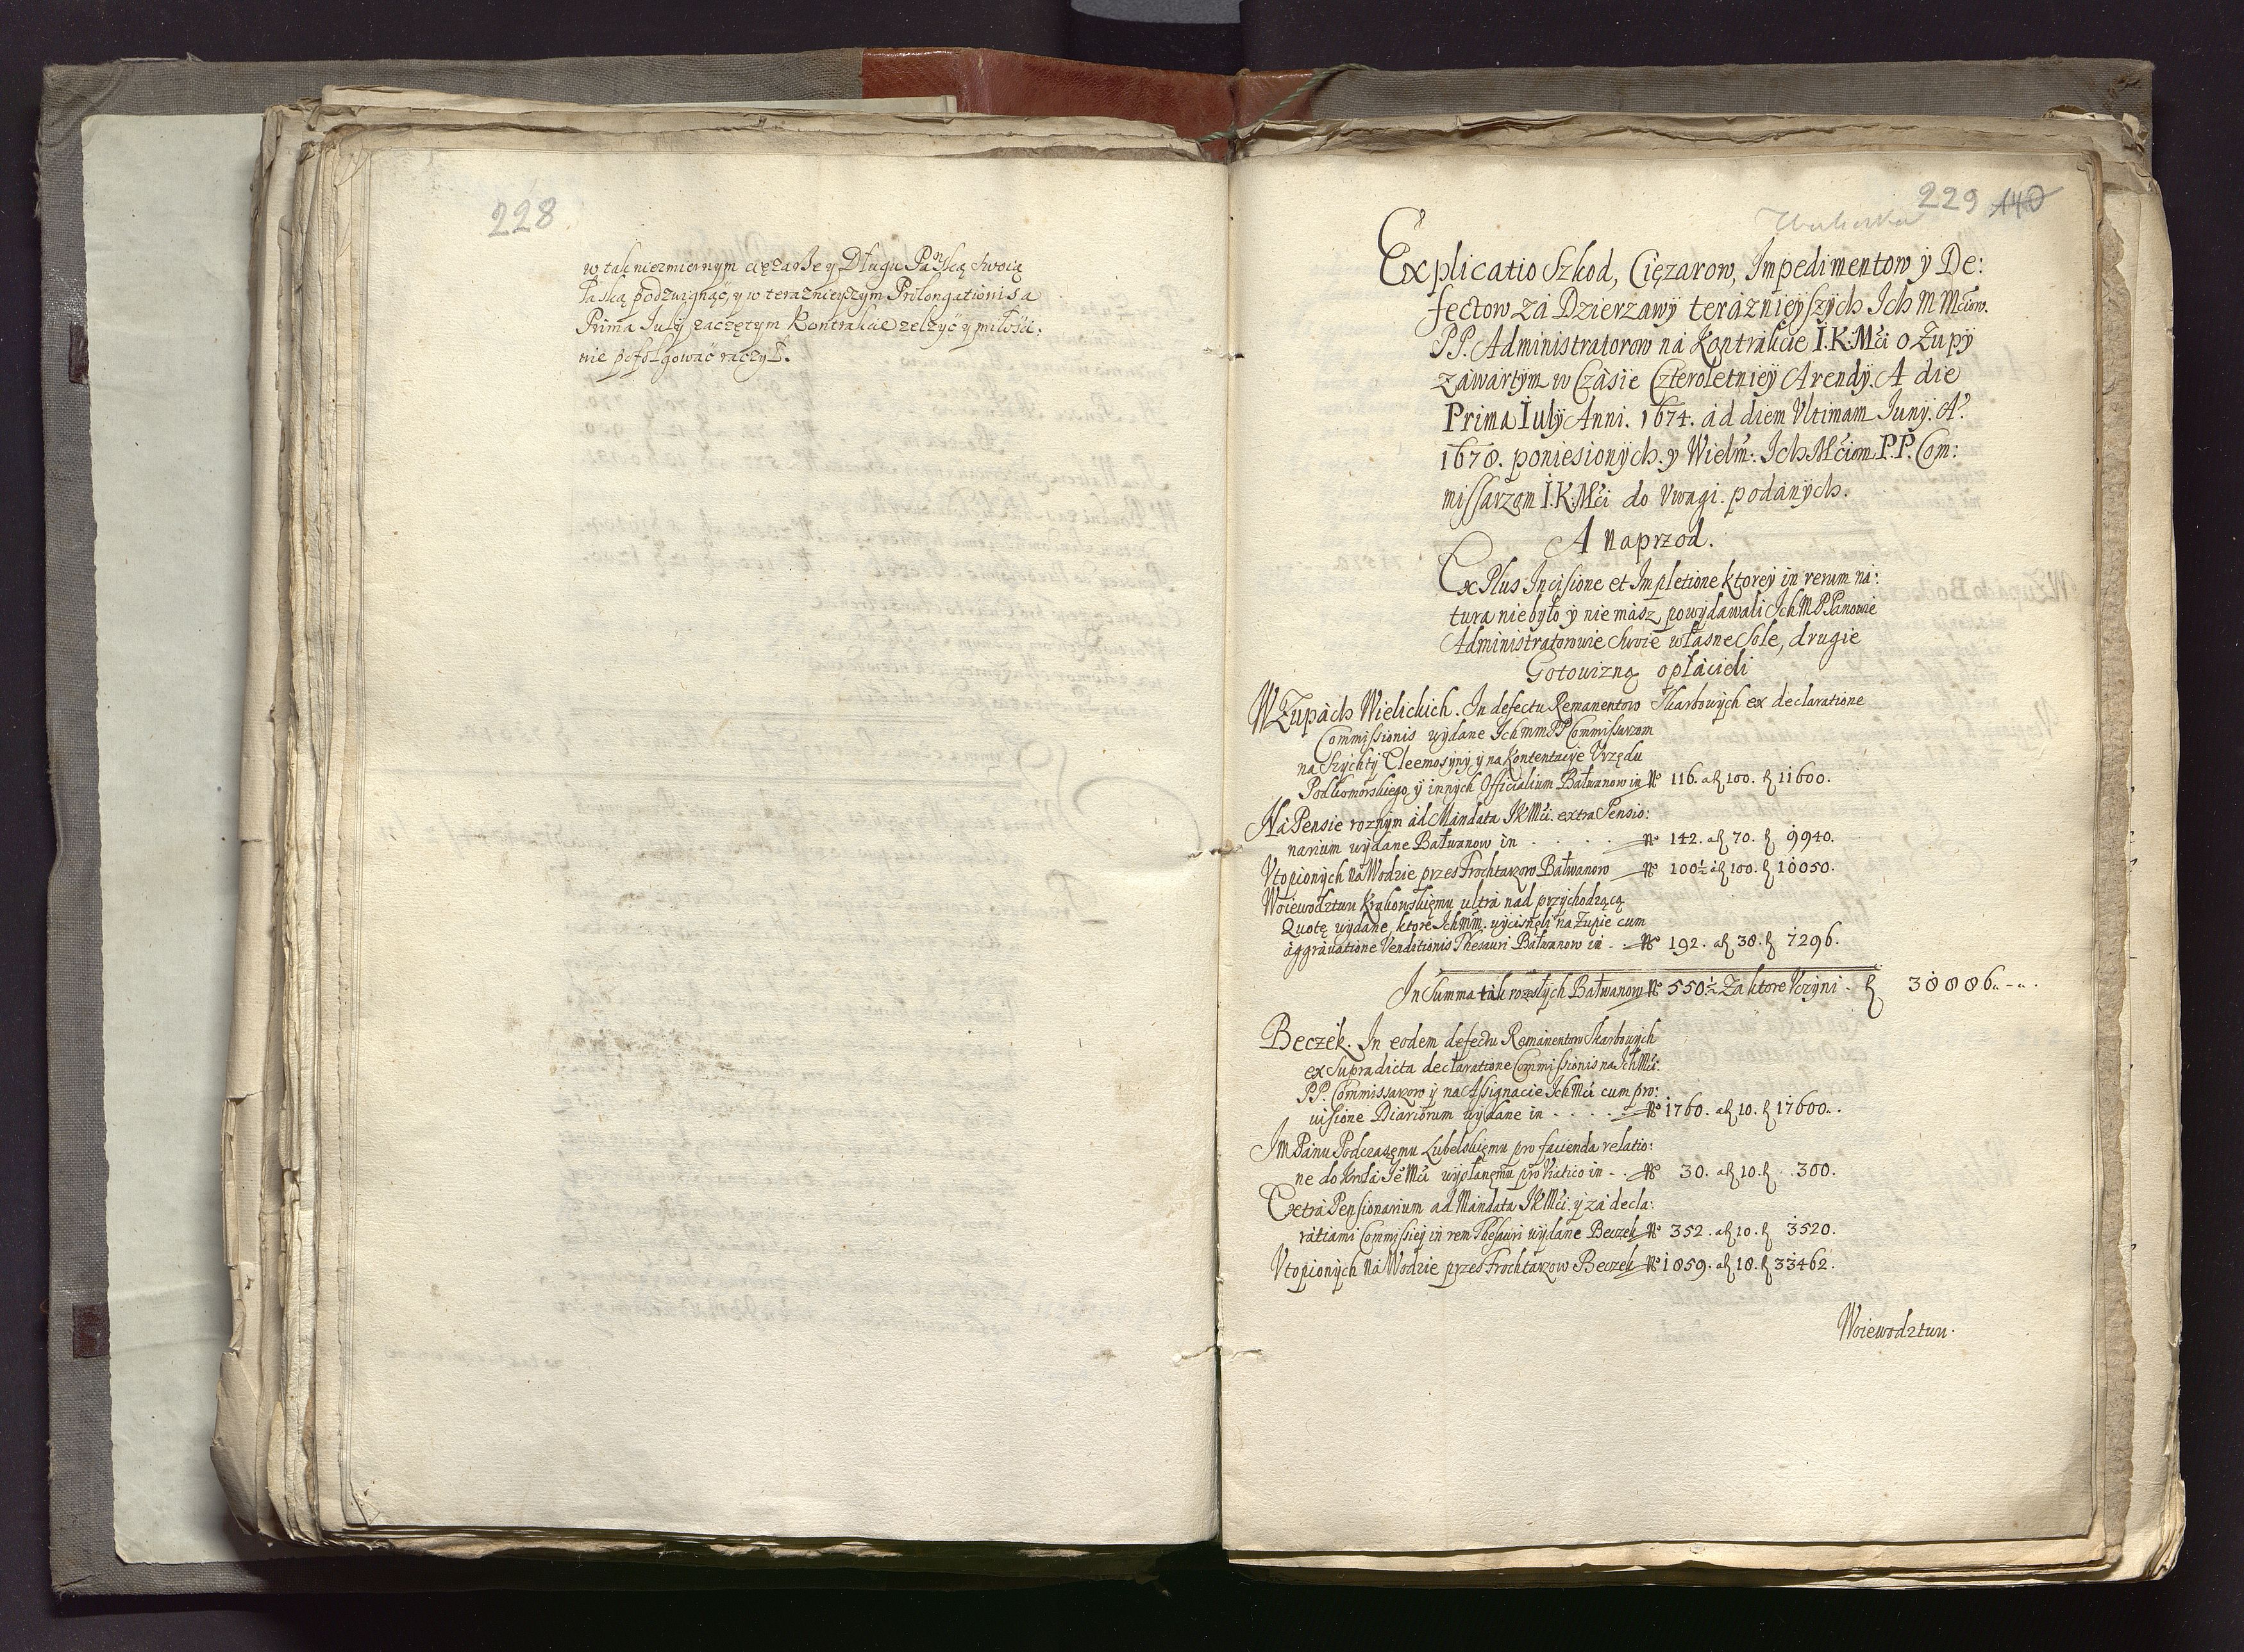 228
w tak niezmiernym ciężarze y Długu Pańską swoią
Łaską podzwignąć, y w teraznieyszym Prolongationis a
Prima July zaczętym Kontrakcie zelżyć y miłości:
nie pofolgować raczył.
229 140
Explicatio Szkod, Ciężarow, Impedimentow ÿ De:
fectow zá Dzierzawÿ terázniëÿszÿch Ich M Mciow.
PP. Administratorow ná Kontrakcie I.K.Mći o Żupÿ
záwartÿm w Czásie Czteroletniëÿ Arendÿ. A die
Prima Iulÿ Anni. 1674. ád diem Vltimam Junÿ. Aº.
1678. poniesionÿch. y Wielm: Ich Mćiom P.P. Com:
missarzom I.K.Mći do Vwagi. podánÿch.
A naprzod.
Ex Plus Incisione et Impletione ktorëÿ in rerum ná:
tura nie było ÿ nie mász, powÿdawali Ich M P Panowie
Administratorowie swoie włásne Sole, drugie
Gotowizną opłácieli
W Żupách Wielickich. In defectu Remanentow Skarbowÿch ex declaratione
Commissionis wÿdane Ich mm PP Commissarzom
na Szÿchtÿ Eleemosÿnÿ ÿ na Kontentacÿe Vrzędu
Podkomorskiego, ÿ innÿch Officialium Bałwanow in Nº 116. af 100. f 11600.
Ná Pensie roznÿm ád Mándata J K Mći. extra Pensio:
narium wÿdane Bałwanow in . . . . . Nº 142. af 70. f 9940.
Vtopionÿch ná Wodzie przes Frochtarzow Bałwanow Nº 100½ af 100. f 10050.
Woiewodztwu Krakowskięmu ultrá nad przÿchodzącą
Quotę wÿdane, ktore Ich mm. wÿcisnęli na Żupie cum
ággráuatione Venditionis Thesauri Bałwanow in . . Nº 192. af 38. f 7296.
In Summa ták rozeszłÿch Bałwanow Nº 550½ Za ktore Vczÿni . f 38886.. - ..
Beczek. In eodem defectu Remánentow Skarbowÿch
ex Supradicta declaratione Commissionis na Ich Mći.
PP. Commissarzow ÿ na Assignacie Ich Mći cum pro:
uisione Diariorum wÿdane in . . . . . Nº 1760. af 10. f 17600..
Jm Pánu Podczaszęmu Lubelskięmu pro facienda relatio:
ne do Krolá Je Mći wÿsłanęmu pro Viatico in - . . Nº 30. af 10. f 300.
Extrá Pensionarium ad Mándata J K Mći. ÿ zá decla:
rátiami Commissiëÿ in rem Thesauri wÿdane Beczek Nº 352. af 10. f 3520.
Vtopionÿch ná Wodzie przes Frochtarzow Beczek Nº 1859. af 18. f 33462.
Woiewodztwu.